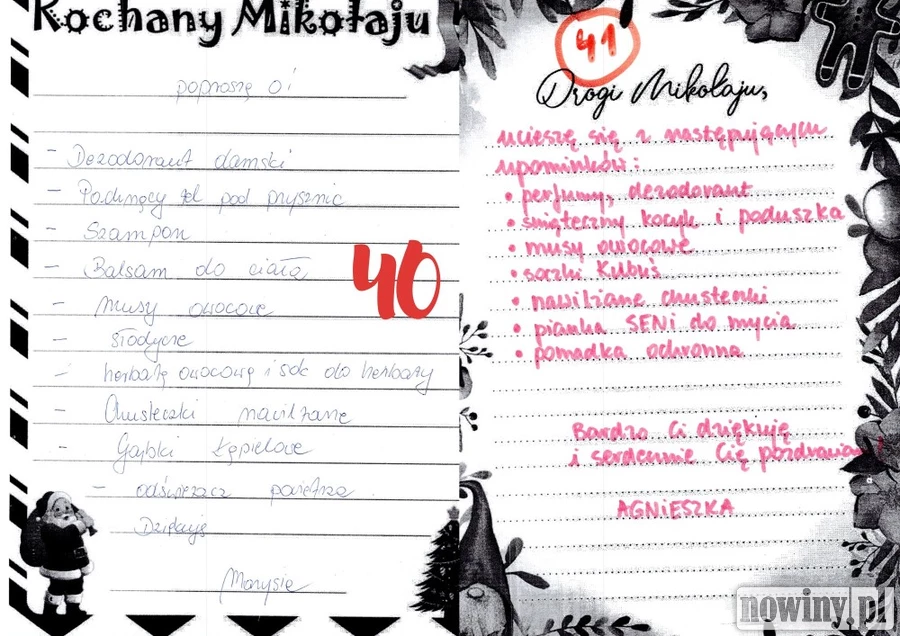 Kochany Mikołaju
poproszę o:
- Dezodorant damski
- żel pod prysznic
- Szampon
- Balsam do ciała
- musy owocowe
- słodycze
- herbatę owocową i sok do herbaty
- Chusteczki nawilżane
- Gąbki kąpielowe
- odświeżacz powietrza
Dziękuję
Marysia
40
41
Drogi Mikołaju,
ucieszę się z następujących
upominków:
• perfumy, dezodorant
• świąteczny kocyk i poduszka
• musy owocowe
• soczki Kubuś
• nawilżane chusteczki
• pianka SENI do mycia
• pomadka ochronna
Bardzo Ci dziękuję
i serdecznie Cię pozdrawiam!
AGNIESZKA
nowiny.pl